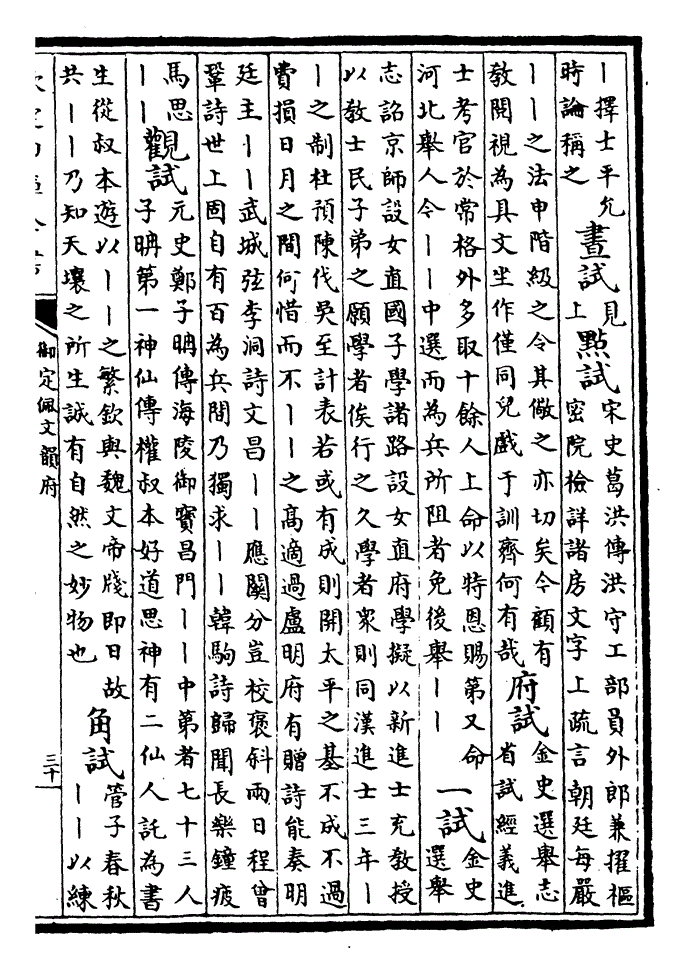 丨擇士平允
時論稱之
晝試
見
上
點試
宋史葛洪傳洪守工部員外郎兼擢樞
密院檢詳諸房文字上疏言朝廷每嚴
丨丨之法申階級之令其儆之亦切矣今顧有
教閱視為具文坐作僅同兒戲于訓齊何有哉
府試
金史選舉志
省試經義進
士考官於常格外多取十餘人上命以特恩賜第又命
河北舉人令丨丨中選而為兵所阻者免後舉丨丨
一試
金史
選舉
志詔京師設女直國子學諸路設女直府學擬以新進士充教授
以教士民子弟之願學者俟行之久學者衆則同漢進士三年丨
丨之制杜預陳伐吳至計表若或有成則開太平之基不成不過
費損日月之間何惜而不丨丨之高適過盧明府有贈詩能奏明
廷主丨丨武城弦李洞詩文昌丨丨應闗分豈校褒斜兩日程曾
鞏詩世上固自有百為兵間乃獨求丨丨韓駒詩歸聞長樂鐘疲
馬思
丨丨
觀試
元史鄭子聃傳海陵御寶昌門丨丨中第者七十三人
子聃第一神仙傳權叔本好道思神有二仙人託為書
生從叔本遊以丨丨之繁欽與魏文帝牋即日故
共丨丨乃知天壤之所生誠有自然之妙物也
角試
管子春秋
丨丨以練
御定佩文韻府
三十